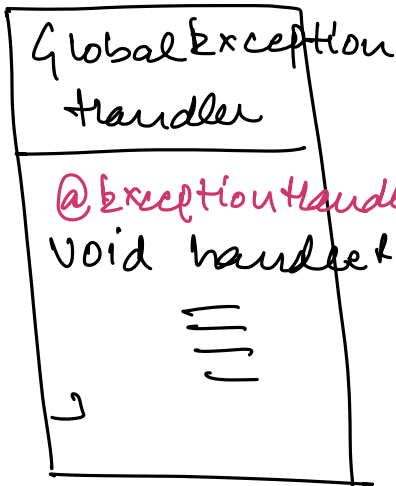 Global Exception
Handler
@ExceptionHandle
void handleE